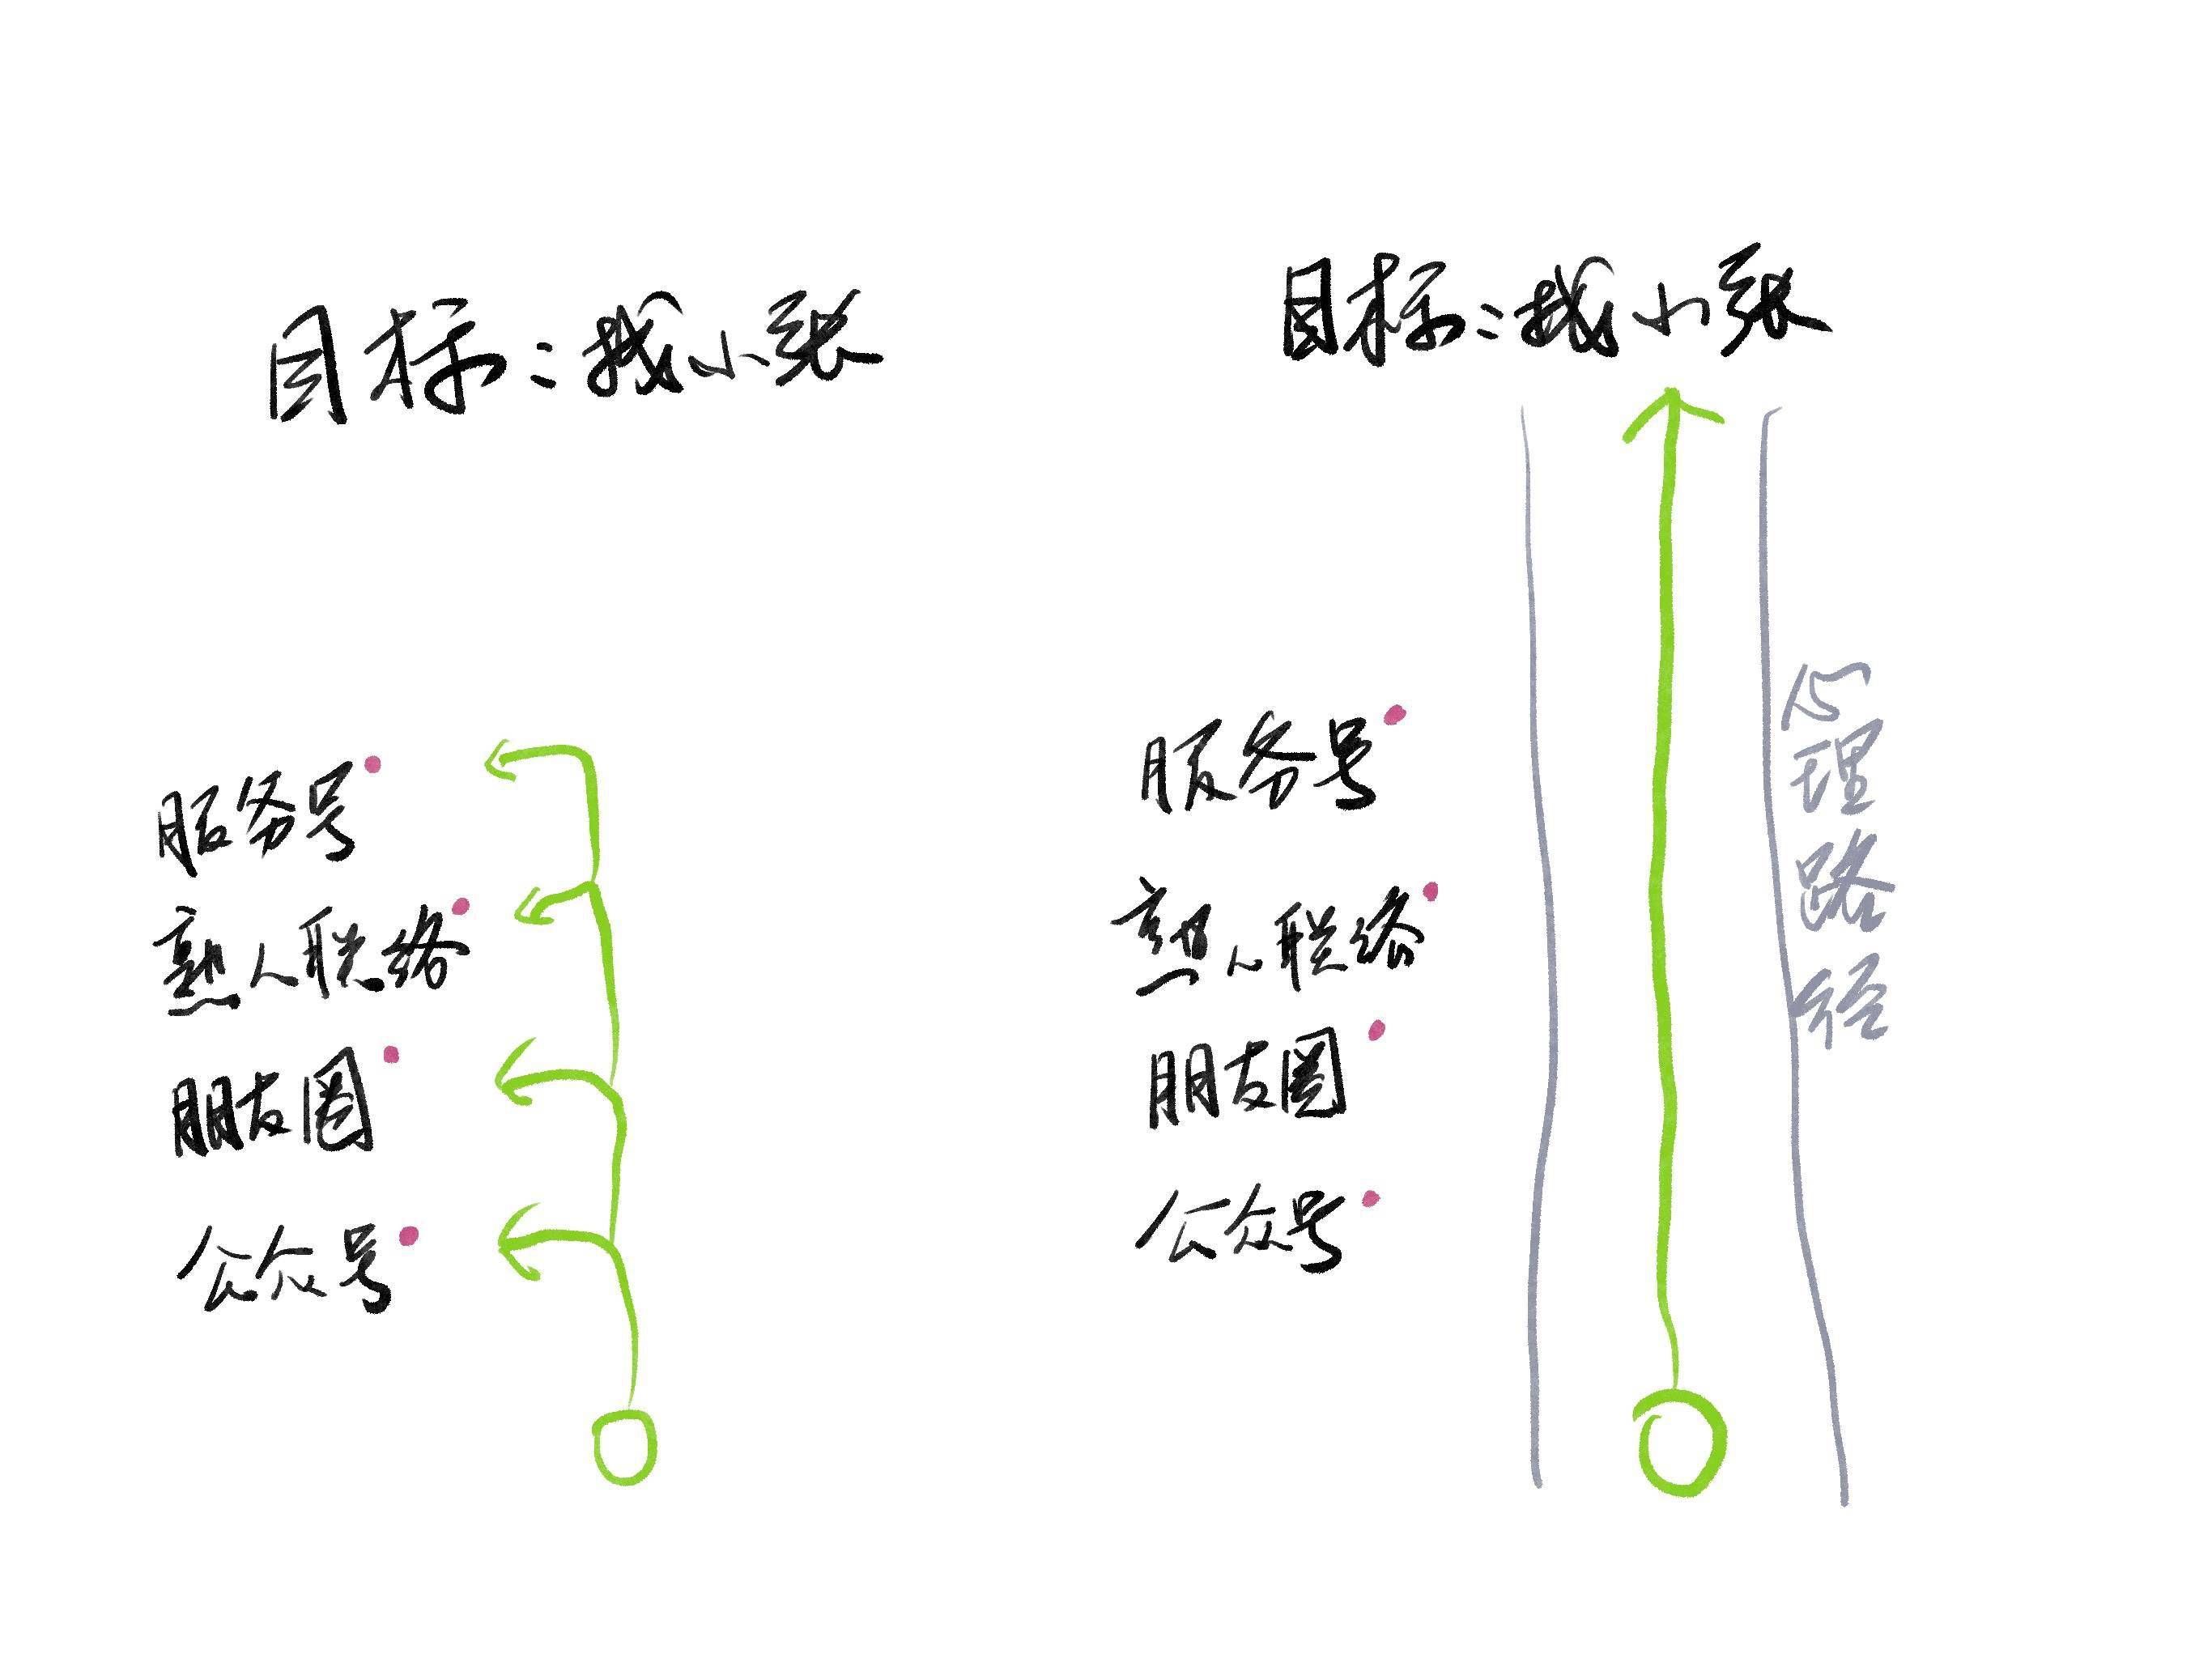 目标：找小张
服务号
熟人联络
朋友圈
公众号
目标：找小张
服务号
熟人联络
朋友圈
公众号
心理路径